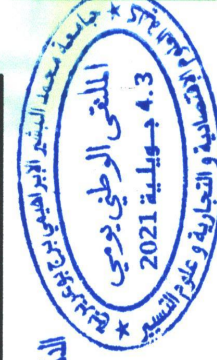 جامعة محمد البشير الإبراهيمي برج بوعريريج
الملتقى الوطني يومي
4.3 جويلية 2021
الاقتصادية والتجارية وعلوم التسيير